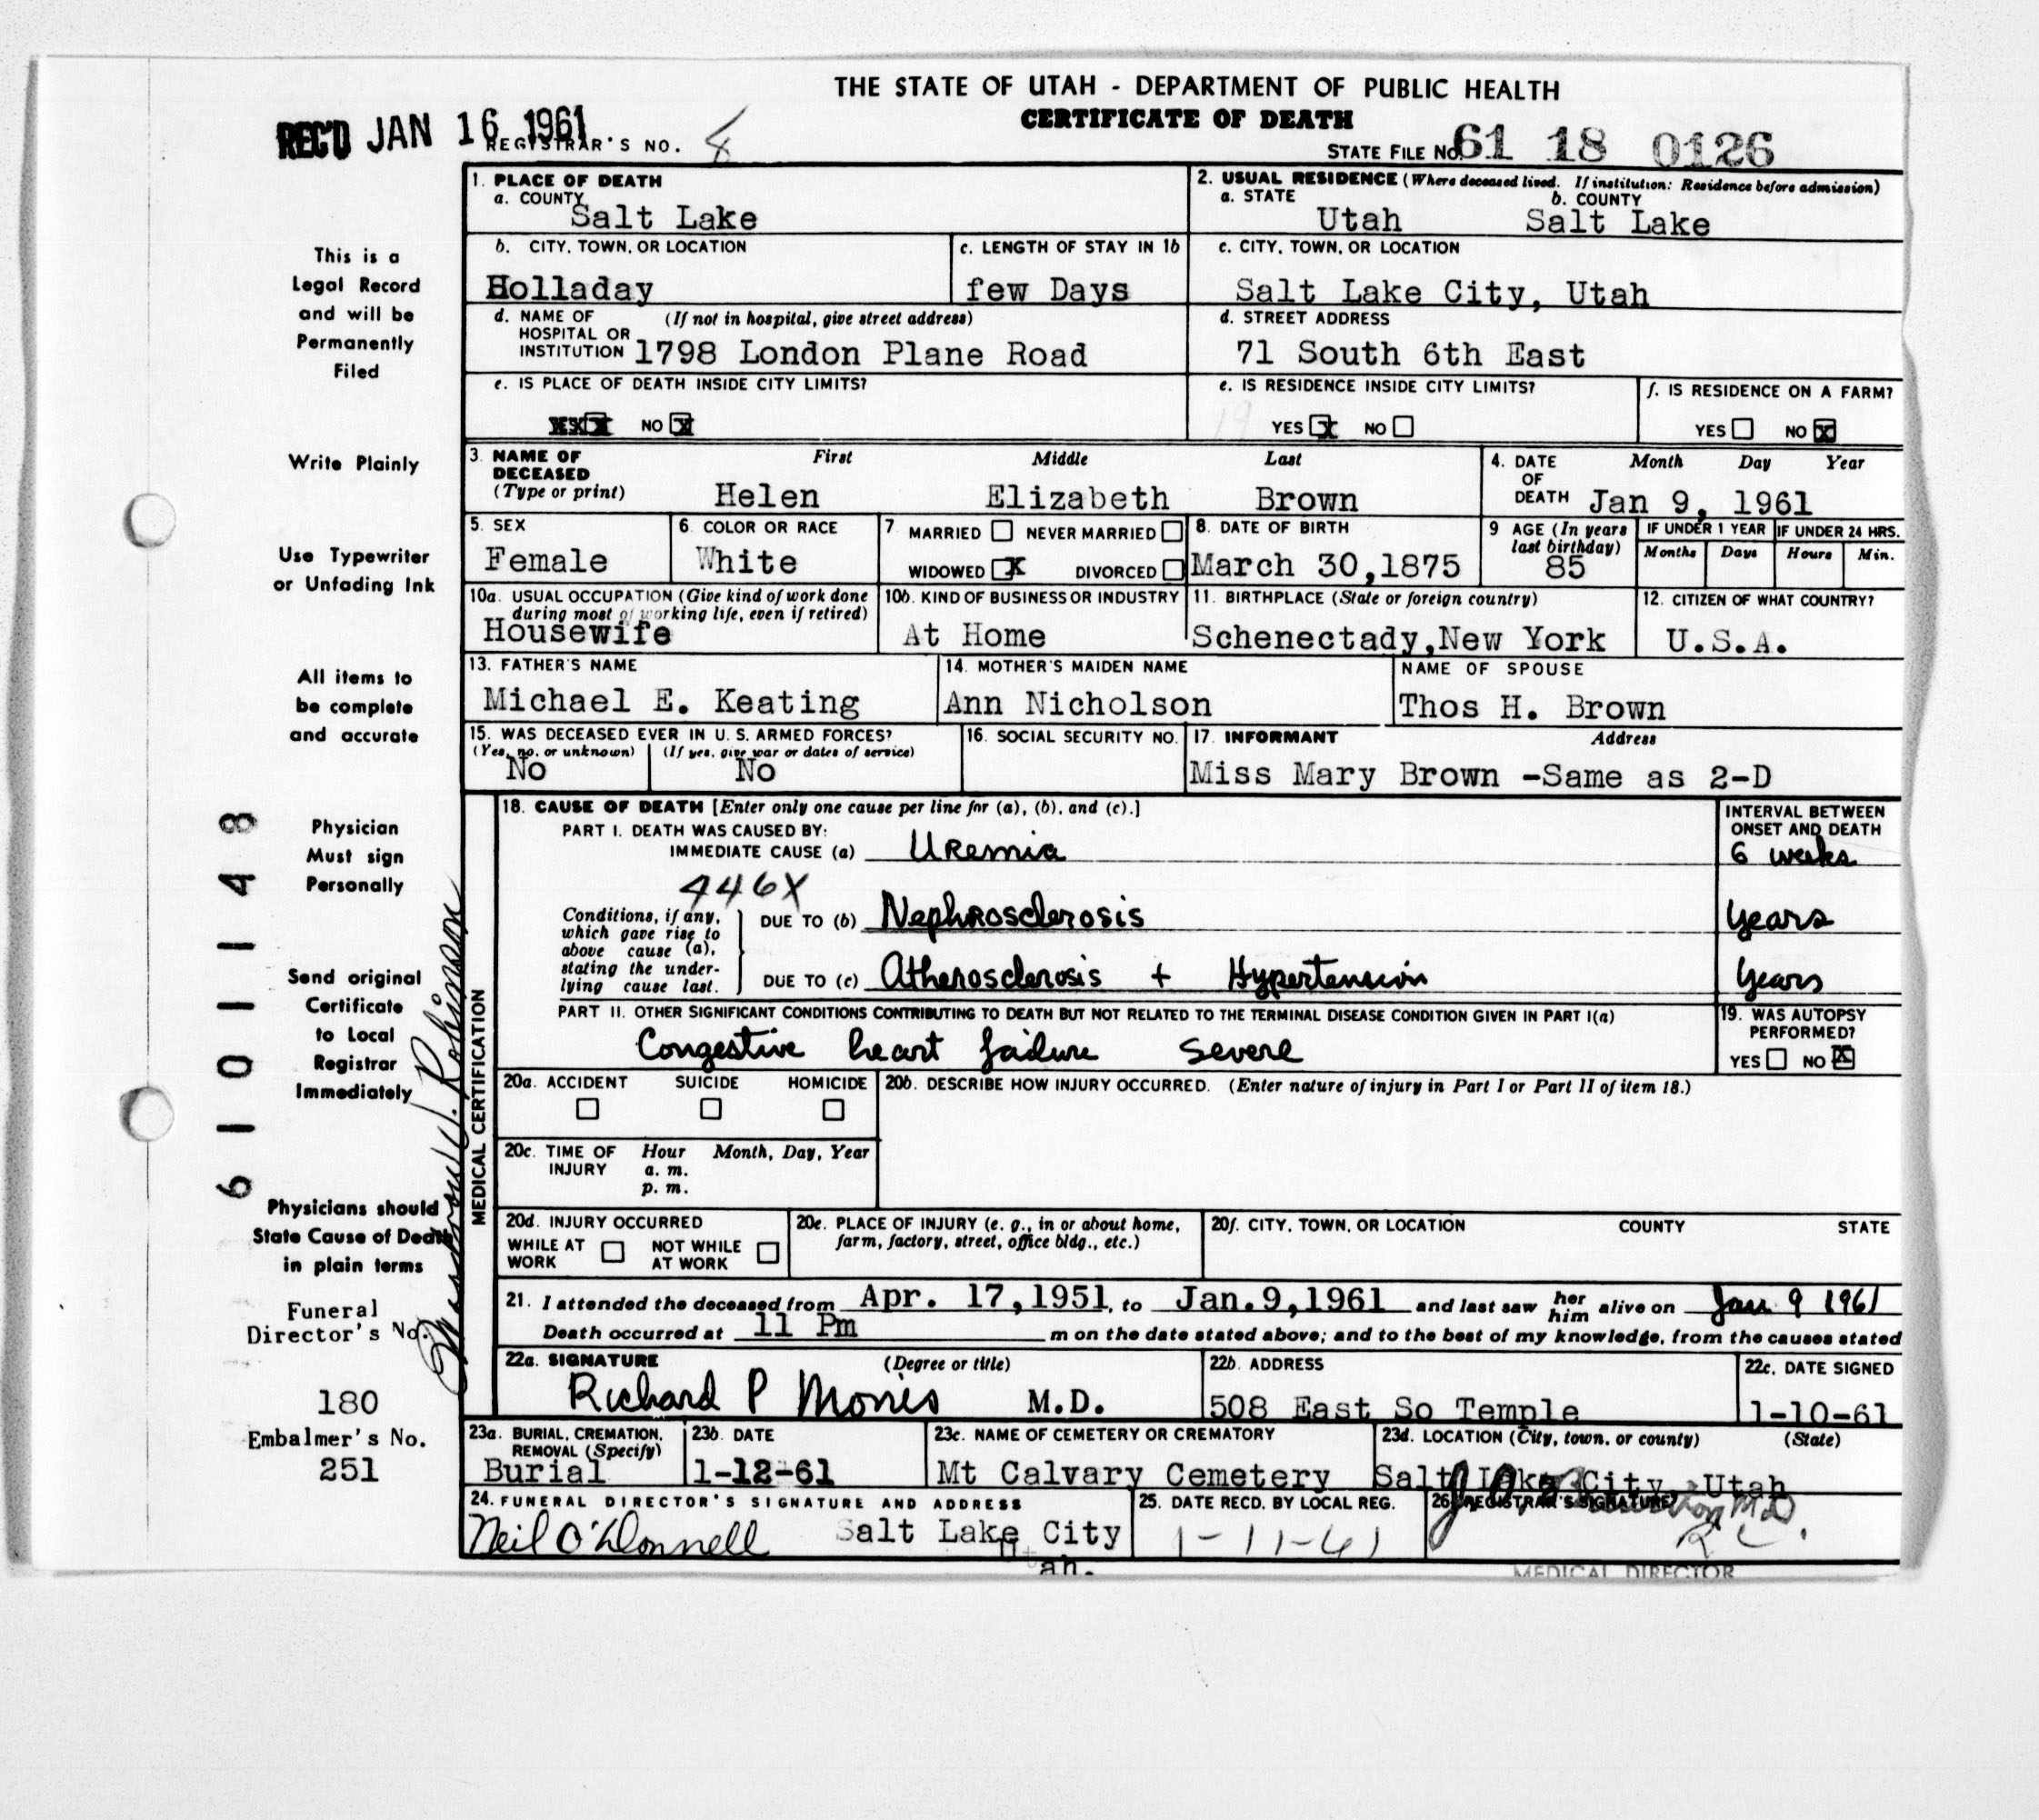 THE STATE OF UTAH - DEPARTMENT OF PUBLIC HEALTH
CERTIFICATE OF DEATH
REC'D JAN 16 1961
REGISTRAR'S NO.
STATE FILE NO. 61 18 0126
1. PLACE OF DEATH
a. COUNTY
Salt Lake
2. USUAL RESIDENCE (Where deceased lived. If institution: Residence before admission)
a. STATE b. COUNTY
Utah Salt Lake
b. CITY, TOWN, OR LOCATION
Holladay
c. LENGTH OF STAY IN 1b
few Days
c. CITY, TOWN, OR LOCATION
Salt Lake City, Utah
d. NAME OF (If not in hospital, give street address)
HOSPITAL OR
INSTITUTION 1798 London Plane Road
d. STREET ADDRESS
71 South 6th East
e. IS PLACE OF DEATH INSIDE CITY LIMITS?
YES X NO X
e. IS RESIDENCE INSIDE CITY LIMITS?
YES X NO
f. IS RESIDENCE ON A FARM?
YES NO X
3. NAME OF DECEASED (Type or print)
First Middle Last
Helen Elizabeth Brown
4. DATE OF DEATH Month Day Year
Jan 9, 1961
5. SEX
Female
6. COLOR OR RACE
White
7. MARRIED NEVER MARRIED
WIDOWED X DIVORCED
8. DATE OF BIRTH
March 30,1875
9 AGE (In years last birthday)
85
IF UNDER 1 YEAR
Months Days
IF UNDER 24 HRS.
Hours Min.
10a. USUAL OCCUPATION (Give kind of work done
during most of working life, even if retired)
Housewife
10b. KIND OF BUSINESS OR INDUSTRY
At Home
11. BIRTHPLACE (State or foreign country)
Schenectady,New York
12. CITIZEN OF WHAT COUNTRY?
U.S.A.
13. FATHER'S NAME
Michael E. Keating
14. MOTHER'S MAIDEN NAME
Ann Nicholson
NAME OF SPOUSE
Thos H. Brown
15. WAS DECEASED EVER IN U. S. ARMED FORCES?
(Yes, no, or unknown) (If yes, give war or dates of service)
No No
16. SOCIAL SECURITY NO.
17. INFORMANT Address
Miss Mary Brown -Same as 2-D
MEDICAL CERTIFICATION
18. CAUSE OF DEATH [Enter only one cause per line for (a), (b), and (c).]
INTERVAL BETWEEN
ONSET AND DEATH
PART I. DEATH WAS CAUSED BY:
IMMEDIATE CAUSE (a) Uremia 6 weeks
446X
Conditions, if any,
which gave rise to
above cause (a),
stating the under-
lying cause last.
DUE TO (b) Nephrosclerosis years
DUE TO (c) Atherosclerosis + Hypertension years
PART II. OTHER SIGNIFICANT CONDITIONS CONTRIBUTING TO DEATH BUT NOT RELATED TO THE TERMINAL DISEASE CONDITION GIVEN IN PART I(a)
Congestive heart failure severe
19. WAS AUTOPSY
PERFORMED?
YES NO X
20a. ACCIDENT SUICIDE HOMICIDE
20b. DESCRIBE HOW INJURY OCCURRED. (Enter nature of injury in Part I or Part II of item 18.)
20c. TIME OF INJURY Hour Month, Day, Year
a. m.
p. m.
20d. INJURY OCCURRED
WHILE AT WORK NOT WHILE AT WORK
20e. PLACE OF INJURY (e. g., in or about home,
farm, factory, street, office bldg., etc.)
20f. CITY, TOWN, OR LOCATION COUNTY STATE
21. I attended the deceased from Apr. 17,1951, to Jan.9,1961 and last saw her him alive on Jan 9 1961
Death occurred at 11 Pm m on the date stated above; and to the best of my knowledge, from the causes stated
22a. SIGNATURE (Degree or title)
Richard P Morris M.D.
22b. ADDRESS
508 East So Temple
22c. DATE SIGNED
1-10-61
23a. BURIAL, CREMATION,
REMOVAL (Specify)
Burial
23b. DATE
1-12-61
23c. NAME OF CEMETERY OR CREMATORY
Mt Calvary Cemetery
23d. LOCATION (City, town, or county) (State)
Salt Lake City, Utah
24. FUNERAL DIRECTOR'S SIGNATURE AND ADDRESS
Neil O'Donnell Salt Lake City
Utah.
25. DATE RECD. BY LOCAL REG.
1-11-61
26. REGISTRAR'S SIGNATURE
MEDICAL DIRECTOR
This is a
Legal Record
and will be
Permanently
Filed
Write Plainly
Use Typewriter
or Unfading Ink
All items to
be complete
and accurate
Physician
Must sign
Personally
Send original
Certificate
to Local
Registrar
Immediately
Physicians should
State Cause of Death
in plain terms
Funeral
Director's No.
180
Embalmer's No.
251
6101148
Robinson